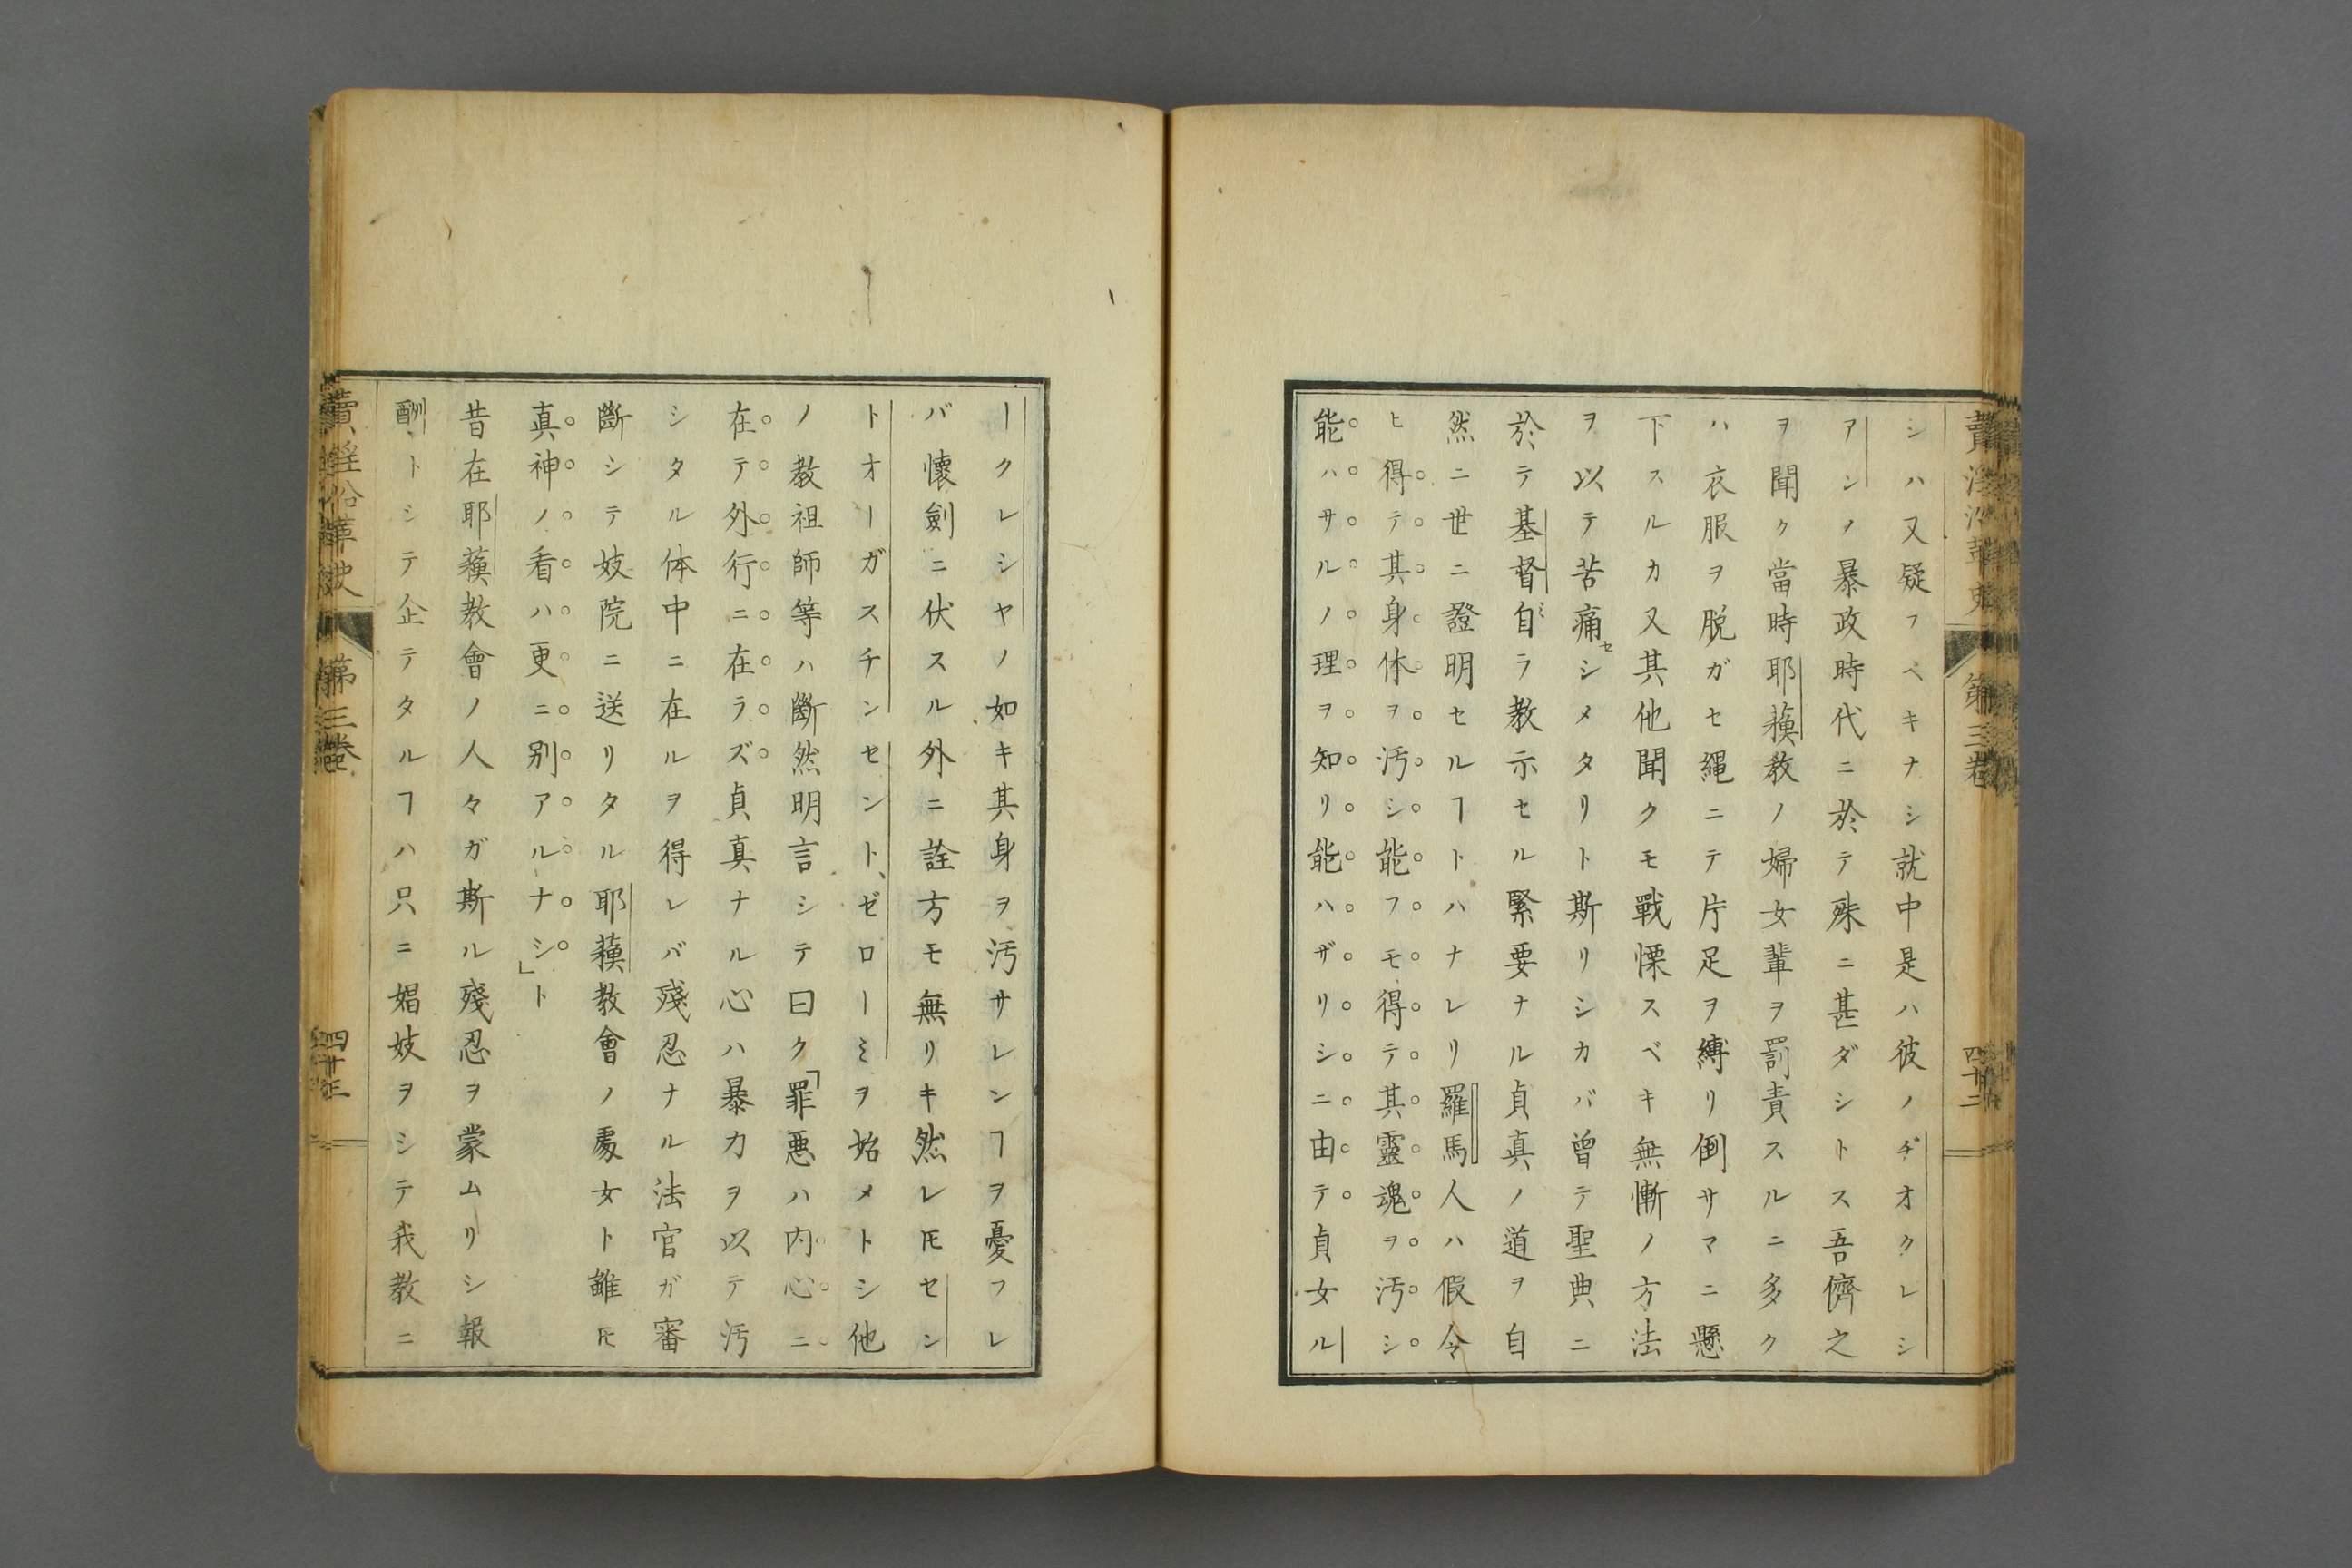 賣淫沿革史 第三卷 四十二
シハ又疑フベキナシ就中是ハ彼ノヂオクレシ
アンノ暴政時代ニ於テ殊ニ甚ダシトス吾儕之
ヲ聞ク當時耶蘓教ノ婦女輩ヲ罰責スルニ多ク
ハ衣服ヲ脱ガセ繩ニテ片足ヲ縛リ倒サマニ懸
下スルカ又其他聞クモ戰慄スベキ無慚ノ方法
ヲ以テ苦痛セシメタリト斯リシカバ曾テ聖典ニ
於テ基督自ミラ教示セル緊要ナル貞真ノ道ヲ自
然ニ世ニ證明セルヿトハナレリ羅馬人ハ假令
ヒ得テ其身体ヲ汚シ能フモ得テ其靈魂ヲ汚シ
能ハサルノ理ヲ知リ能ハザリシニ由テ貞女ル
ークレシヤノ如キ其身ヲ汚サレンヿヲ憂フレ
バ懷劍ニ伏スル外ニ詮方モ無リキ然レ𪜈セン
トオーガスチンセント、ゼローミヲ始メトシ他
ノ教祖師等ハ斷然明言シテ曰ク「罪惡ハ内心ニ
在テ外行ニ在ラズ貞真ナル心ハ暴力ヲ以テ汚
シタル体中ニ在ルヲ得レバ殘忍ナル法官ガ審
斷シテ妓院ニ送リタル耶蘓教會ノ處女ト雖𪜈
真神ノ看ハ更ニ別アルナシ」ト
昔在耶蘓教會ノ人々ガ斯ル殘忍ヲ蒙ムリシ報
酬トシテ企テタルヿハ只ニ娼妓ヲシテ我教ニ
賣淫沿革史 第三卷 四十三